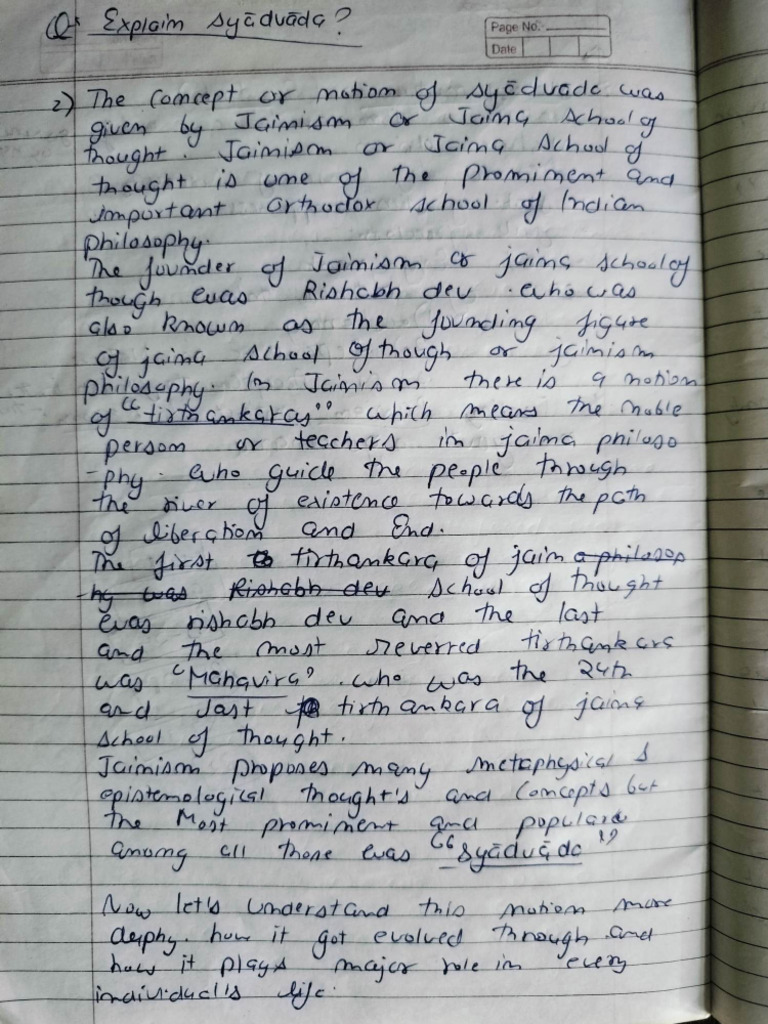 Q. Explain Syādvāda?
Page No.
Date
2) The concept or notion of syādvāda was
given by Jainism or Jaina School of
thought. Jainism or Jaina School of
thought is one of the prominent and
important orthodox school of Indian
philosophy.
The founder of Jainism or jaina school of
though was Rishabh dev. who was
also known as the founding figure
of jaina school of though or jainism
philosophy. In Jainism there is a notion
of "tirthankaras" which means the noble
person or teachers in jaina philoso
-phy. who guide the people through
the river of existence towards the path
of liberation and End.
The first to tirthankara of jain a philosop
-hy was Rishabh dev School of thought
was rishabh dev and the last
and the most reverred tirthankara
was "Mahavira" who was the 24th
and last tirthankara of jaina
school of thought.
Jainism proposes many metaphysical &
epistemological thought's and concepts but
the Most prominent and popular
among all those was "Syādvāda"
Now let's understand this notion more
deeply. how it got evolved through and
how it plays major role in every
individual's life.